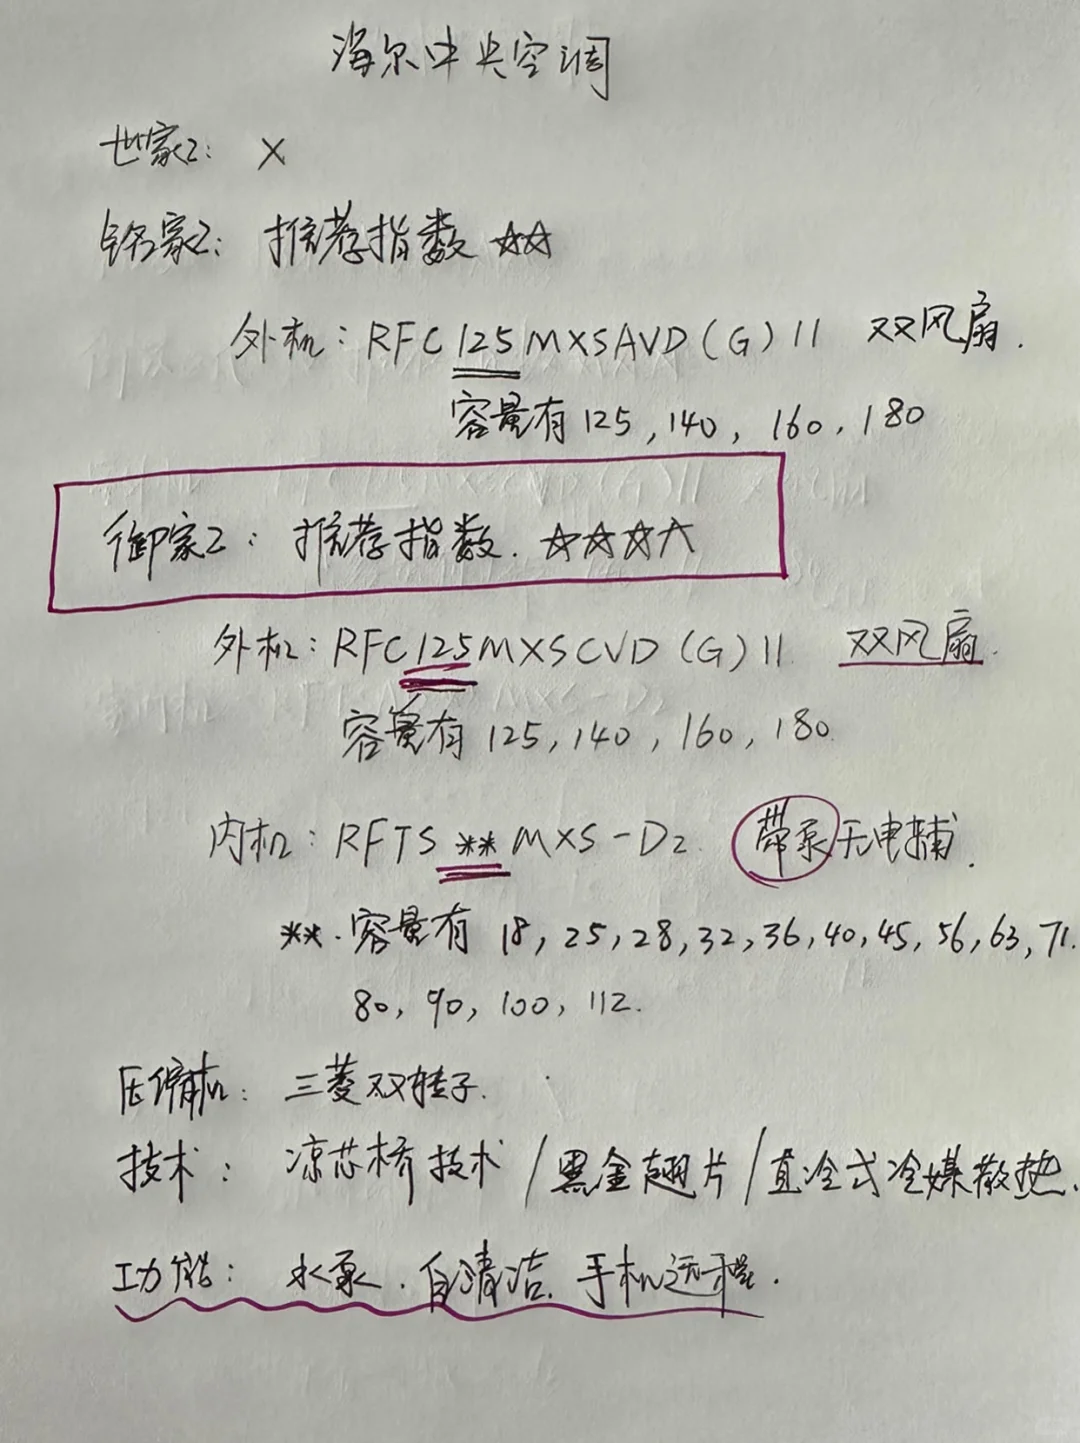 海尔中央空调
世家2: X
铭家2: 推荐指数 ☆☆
外机: RFC125MXSAVD(G)II 双风扇.
容量有125,140,160,180
御家2: 推荐指数. ☆☆☆☆
外机: RFC125MXSCVD(G)II 双风扇.
容量有125,140,160,180.
内机: RFTS**MXS-D2. 带泵无电辅.
**.容量有18,25,28,32,36,40,45,56,63,71.
80,90,100,112.
压缩机: 三菱双转子.
技术: 凉芯桥技术/黑金翅片/直冷式冷媒散热.
功能: 水泵.自清洁.手机远程.